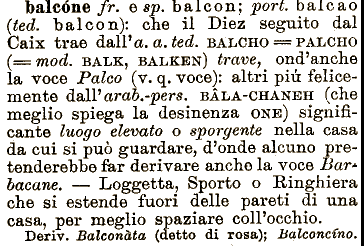 balcóne fr. e sp. balcon; port. balcao
(ted. balcon): che il Diez seguito dal
Caix trae dall'a. a. ted. BALCHO = PALCHO
(= mod. BALK, BALKEN) trave, ond'anche
la voce Palco (v. q. voce): altri più felice-
mente dall'arab.-pers. BÂLA-CHANEH (che
meglio spiega la desinenza ONE) signifi-
cante luogo elevato o sporgente nella casa
da cui si può guardare, d'onde alcuno pre-
tenderebbe far derivare anche la voce Bar-
bacane. — Loggetta, Sporto o Ringhiera
che si estende fuori delle pareti di una
casa, per meglio spaziare coll'occhio.
Deriv. Balconàta (detto di rosa); Balconcíno.